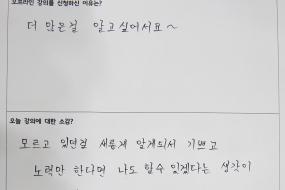 오프라인 강의를 신청하신 이유는?
더 많은걸 알고싶어서요~
오늘 강의에 대한 소감?
모르고 있던걸 새롭게 알게되서 기쁘고
노력만 한다면 나도 할수 있겠다는 생각이